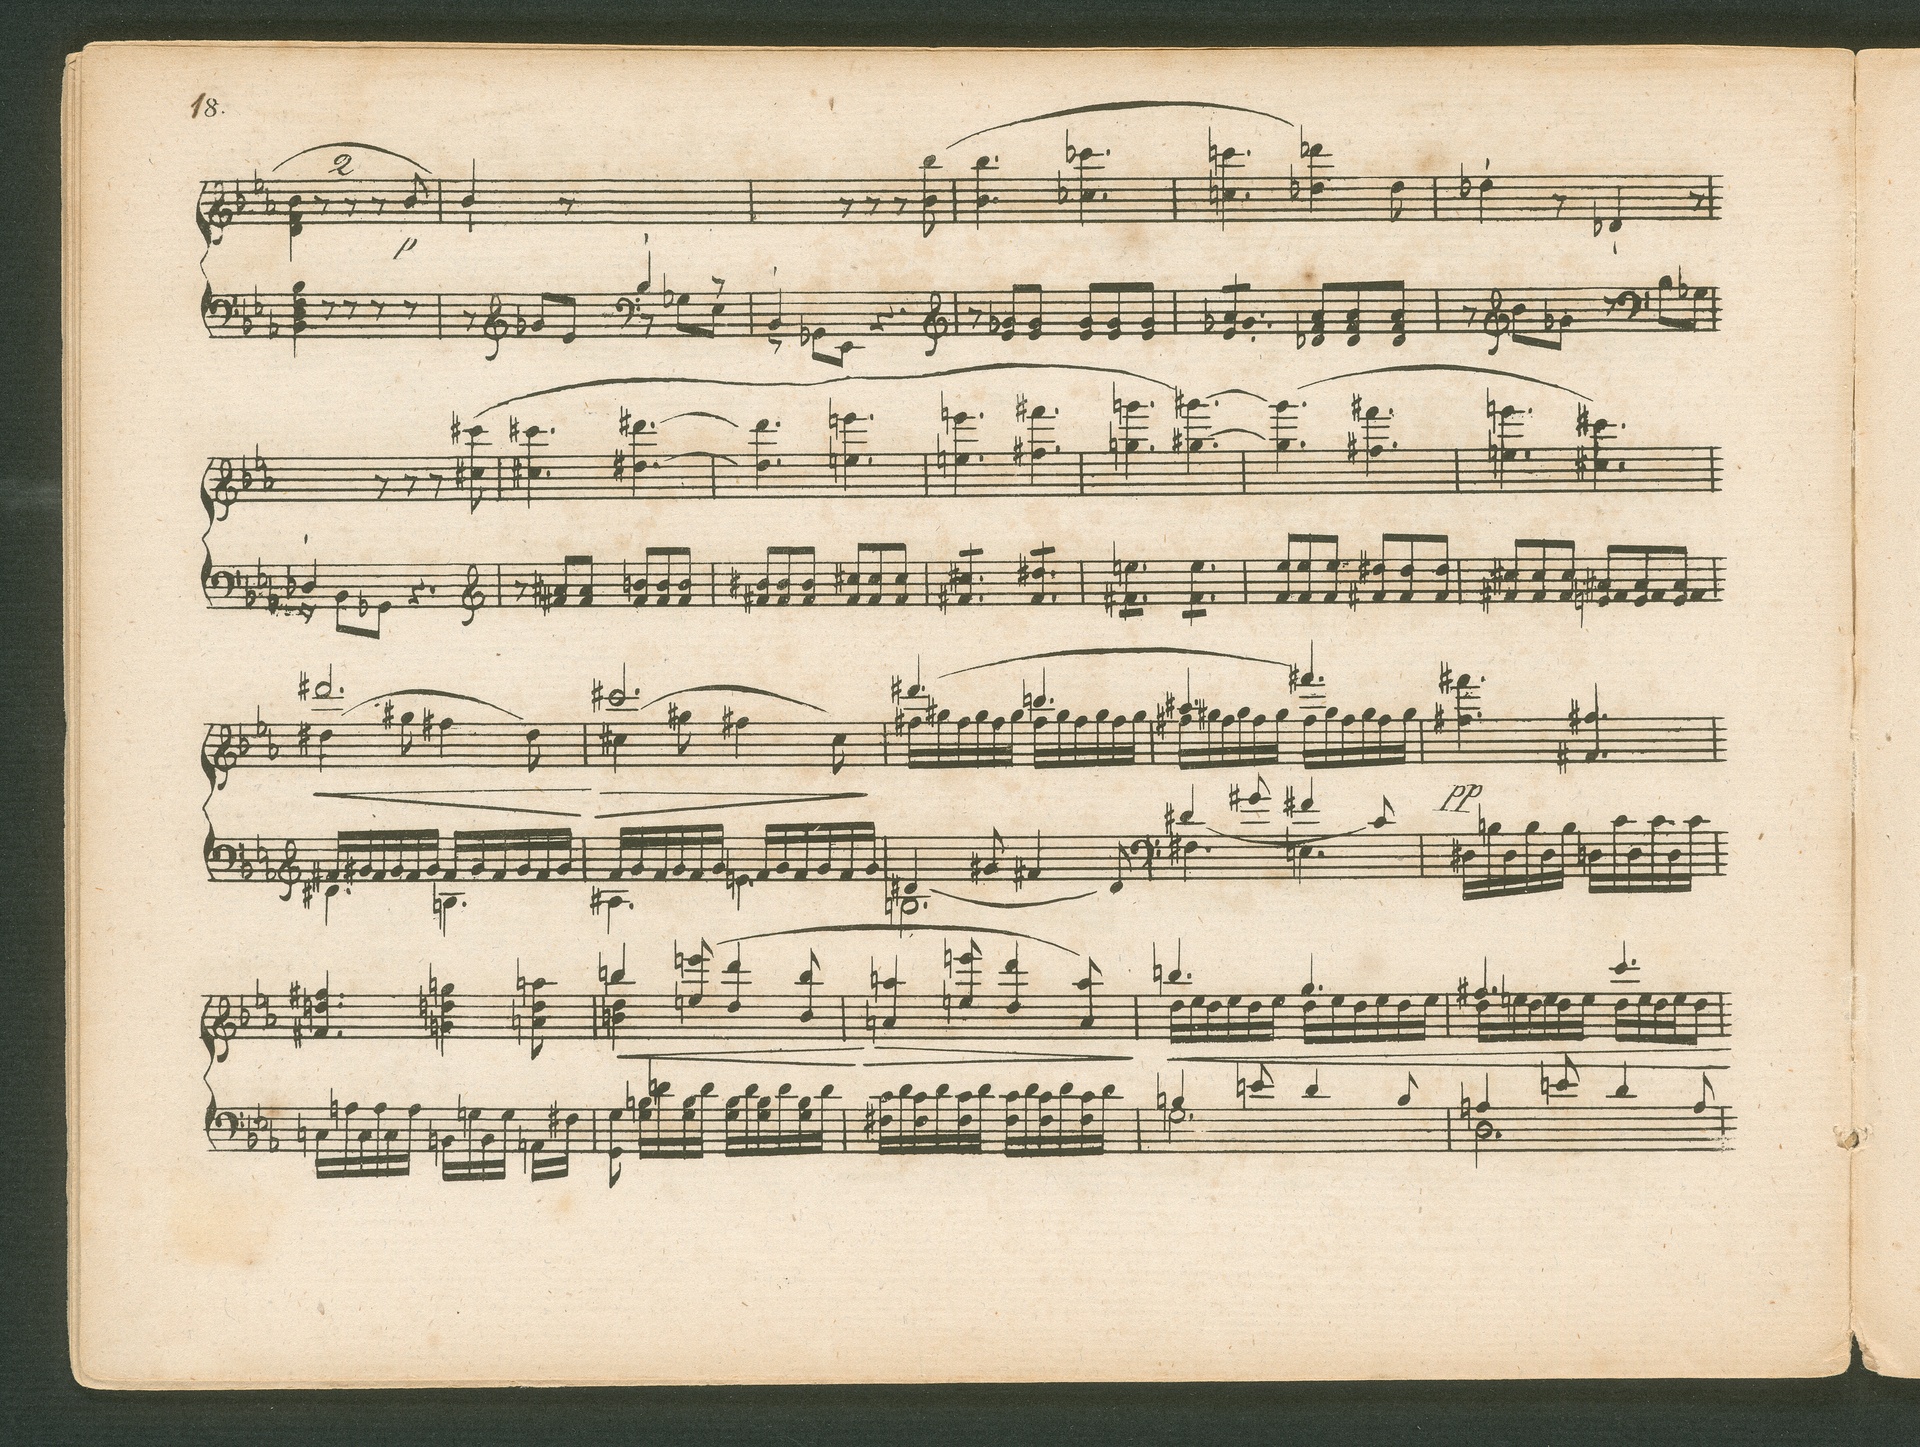 18.
2
p
pp